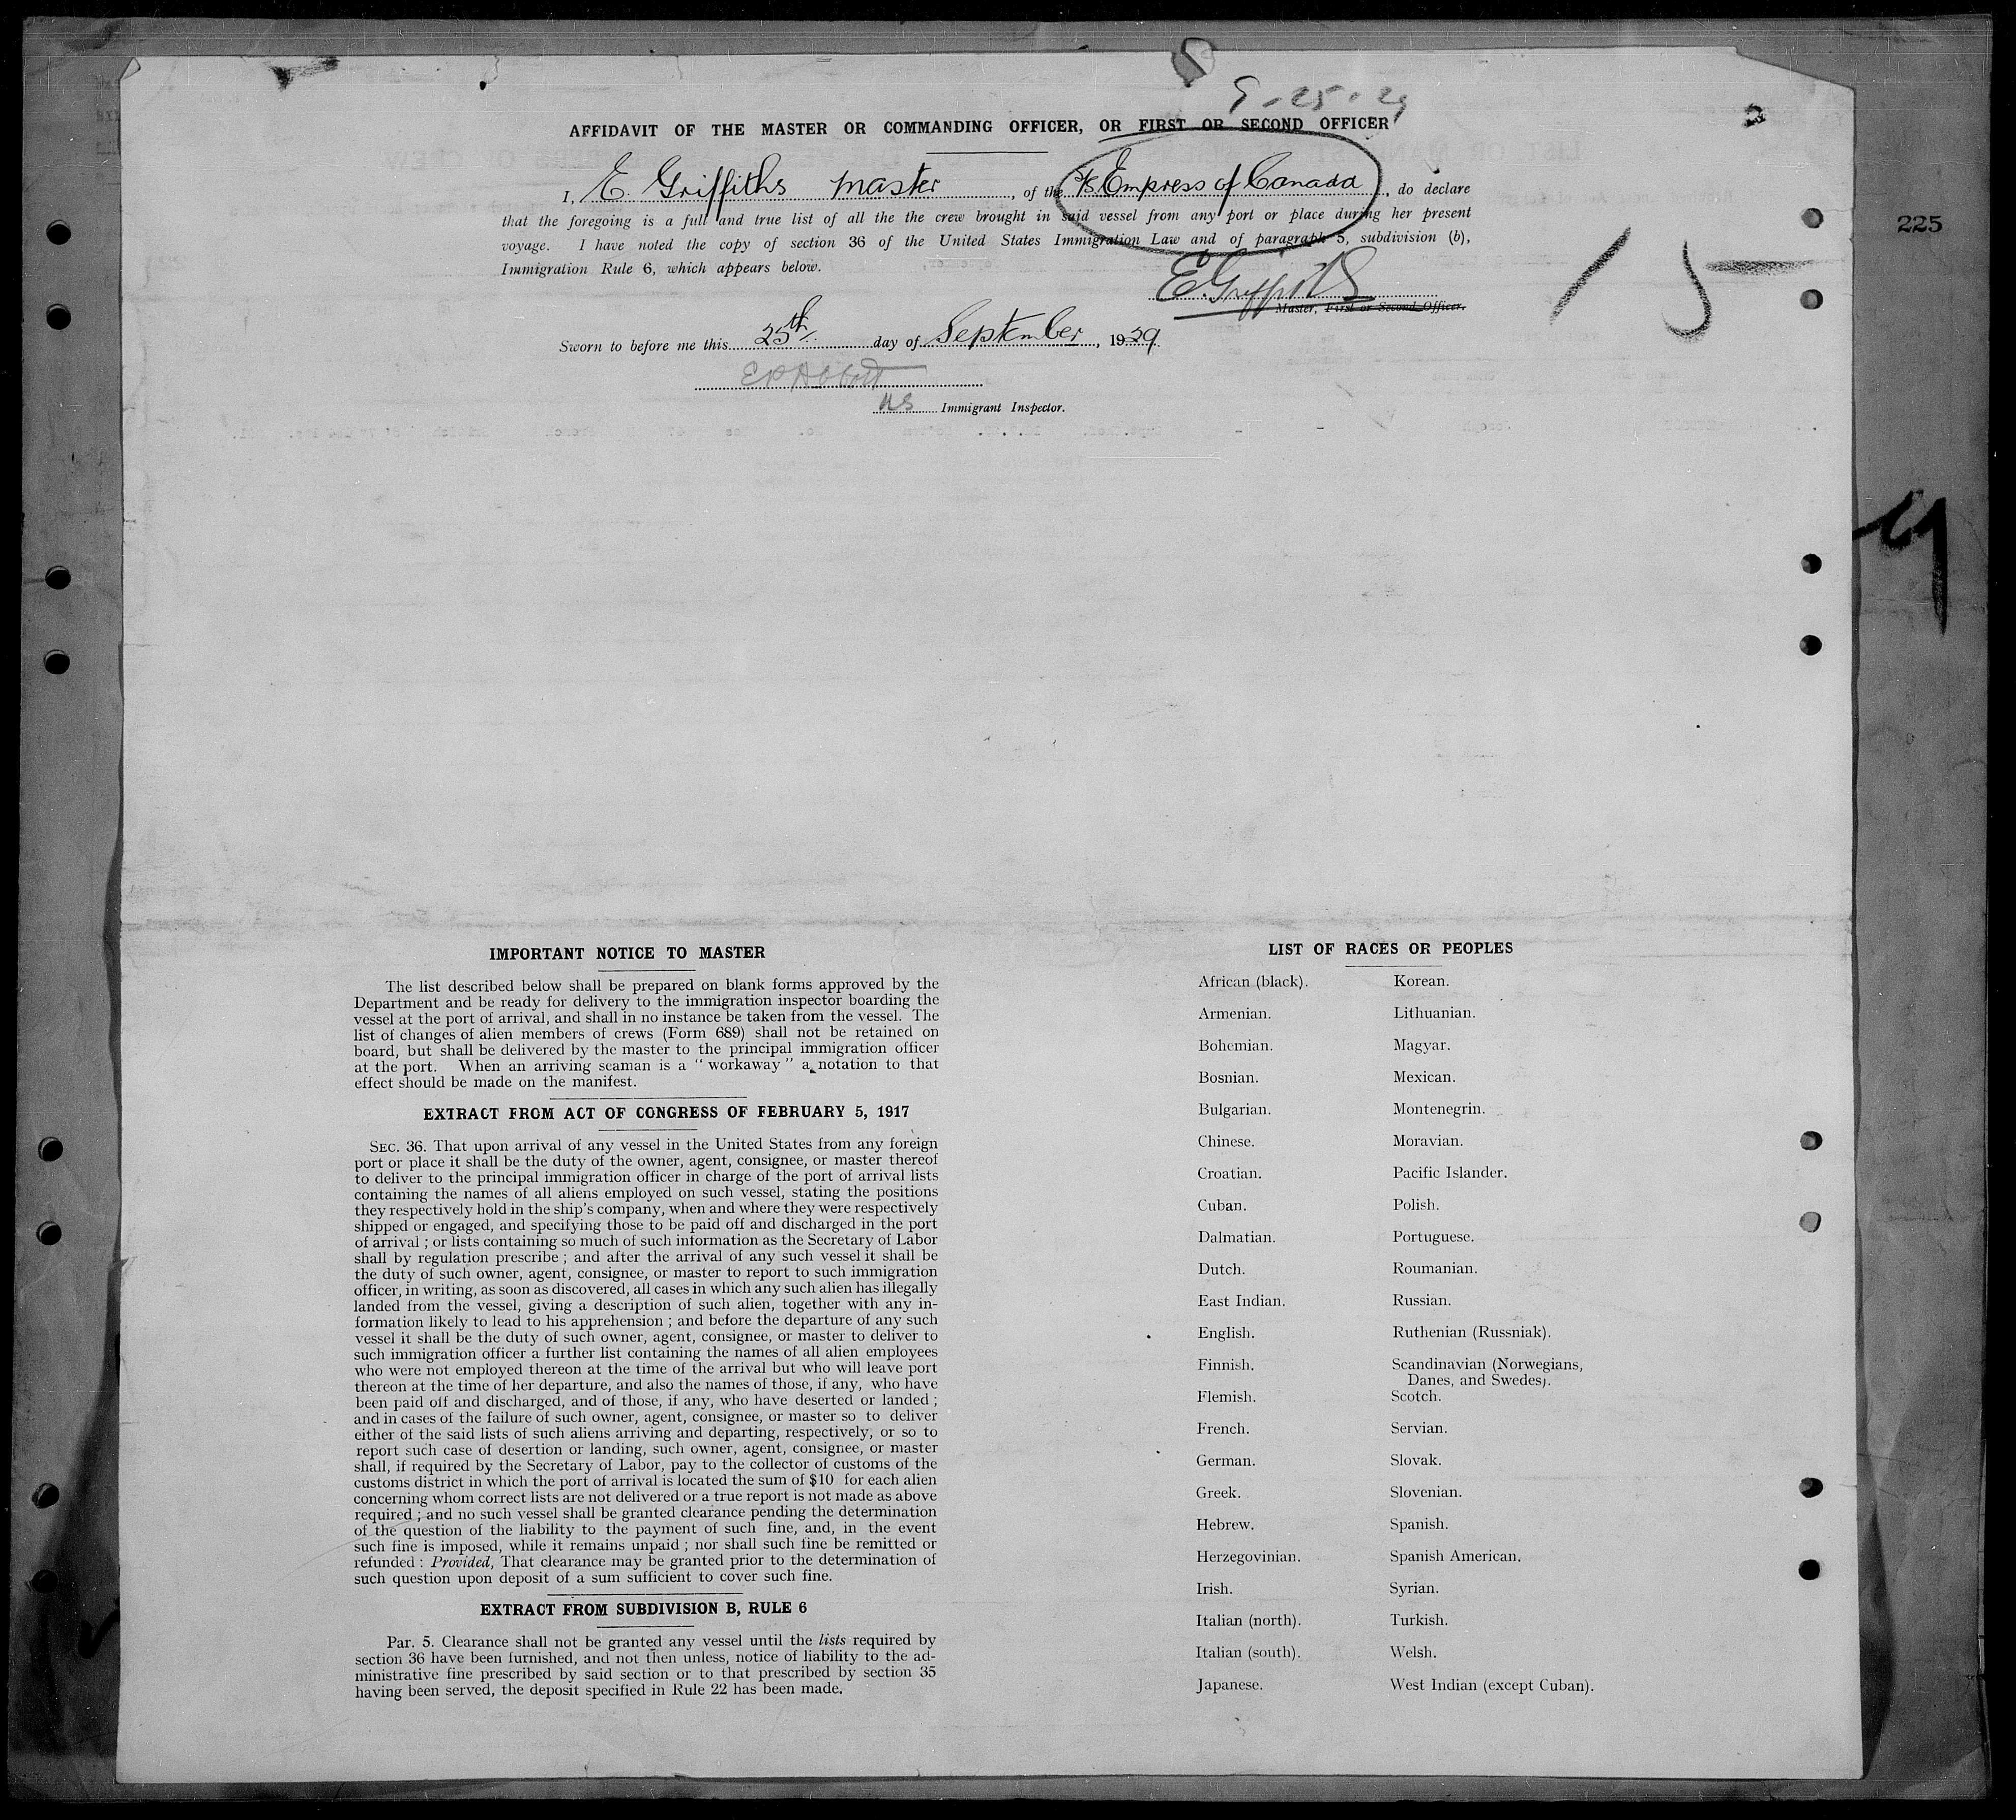 9-25-29
2
AFFIDAVIT OF THE MASTER OR COMMANDING OFFICER, OR FIRST OR SECOND OFFICER
I, E. Griffiths master, of the S/S Empress of Canada, do declare
that the foregoing is a full and true list of all the the crew brought in said vessel from any port or place during her present
voyage. I have noted the copy of section 36 of the United States Immigration Law and of paragraph 5, subdivision (b),
Immigration Rule 6, which appears below.
225
15
E. Griffiths
Master, First or Second Officer.
Sworn to before me this 25th day of September, 1929.
Immigrant Inspector.
IMPORTANT NOTICE TO MASTER
The list described below shall be prepared on blank forms approved by the
Department and be ready for delivery to the immigration inspector boarding the
vessel at the port of arrival, and shall in no instance be taken from the vessel. The
list of changes of alien members of crews (Form 689) shall not be retained on
board, but shall be delivered by the master to the principal immigration officer
at the port. When an arriving seaman is a "workaway" a notation to that
effect should be made on the manifest.
EXTRACT FROM ACT OF CONGRESS OF FEBRUARY 5, 1917
SEC. 36. That upon arrival of any vessel in the United States from any foreign
port or place it shall be the duty of the owner, agent, consignee, or master thereof
to deliver to the principal immigration officer in charge of the port of arrival lists
containing the names of all aliens employed on such vessel, stating the positions
they respectively hold in the ship's company, when and where they were respectively
shipped or engaged, and specifying those to be paid off and discharged in the port
of arrival; or lists containing so much of such information as the Secretary of Labor
shall by regulation prescribe; and after the arrival of any such vessel it shall be
the duty of such owner, agent, consignee, or master to report to such immigration
officer, in writing, as soon as discovered, all cases in which any such alien has illegally
landed from the vessel, giving a description of such alien, together with any in-
formation likely to lead to his apprehension; and before the departure of any such
vessel it shall be the duty of such owner, agent, consignee, or master to deliver to
such immigration officer a further list containing the names of all alien employees
who were not employed thereon at the time of the arrival but who will leave port
thereon at the time of her departure, and also the names of those, if any, who have
been paid off and discharged, and of those, if any, who have deserted or landed;
and in cases of the failure of such owner, agent, consignee, or master so to deliver
either of the said lists of such aliens arriving and departing, respectively, or so to
report such case of desertion or landing, such owner, agent, consignee, or master
shall, if required by the Secretary of Labor, pay to the collector of customs of the
customs district in which the port of arrival is located the sum of $10 for each alien
concerning whom correct lists are not delivered or a true report is not made as above
required; and no such vessel shall be granted clearance pending the determination
of the question of the liability to the payment of such fine, and, in the event
such fine is imposed, while it remains unpaid; nor shall such fine be remitted or
refunded: Provided, That clearance may be granted prior to the determination of
such question upon deposit of a sum sufficient to cover such fine.
EXTRACT FROM SUBDIVISION B, RULE 6
Par. 5. Clearance shall not be granted any vessel until the lists required by
section 36 have been furnished, and not then unless, notice of liability to the ad-
ministrative fine prescribed by said section or to that prescribed by section 35
having been served, the deposit specified in Rule 22 has been made.
LIST OF RACES OR PEOPLES
African (black). Korean.
Armenian. Lithuanian.
Bohemian. Magyar.
Bosnian. Mexican.
Bulgarian. Montenegrin.
Chinese. Moravian.
Croatian. Pacific Islander.
Cuban. Polish.
Dalmatian. Portuguese.
Dutch. Roumanian.
East Indian. Russian.
English. Ruthenian (Russniak).
Finnish. Scandinavian (Norwegians,
Danes, and Swedes).
Flemish. Scotch.
French. Servian.
German. Slovak.
Greek. Slovenian.
Hebrew. Spanish.
Herzegovinian. Spanish American.
Irish. Syrian.
Italian (north). Turkish.
Italian (south). Welsh.
Japanese. West Indian (except Cuban).